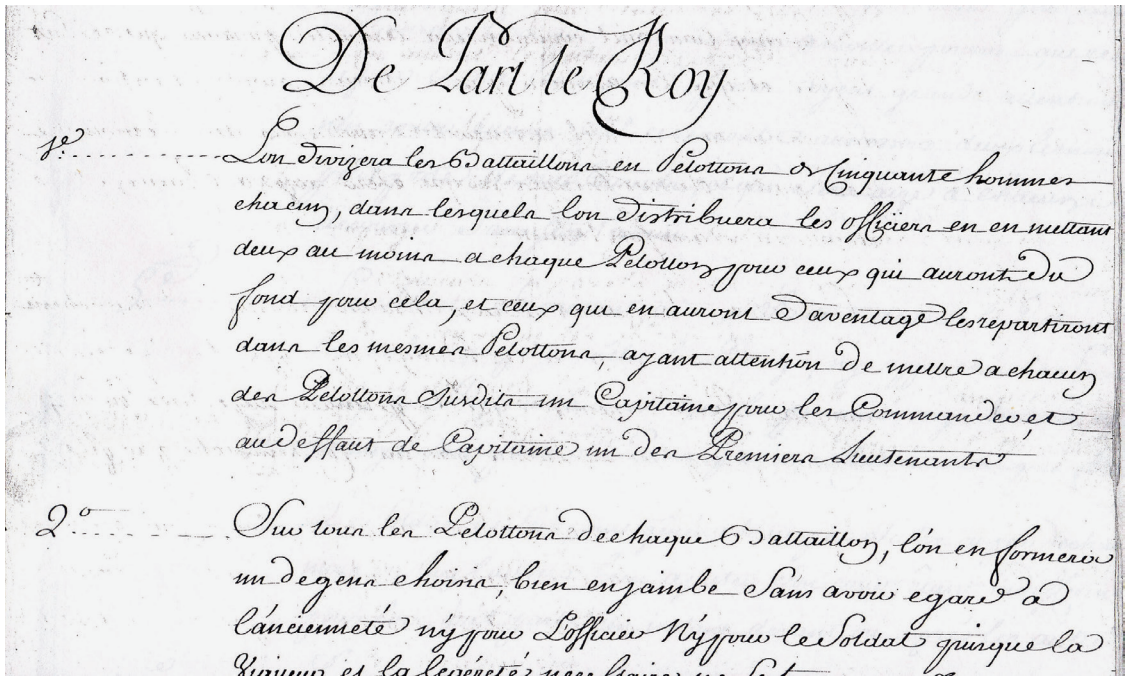 De Part le Roy
1e. Lon divizera les Battaillons en Pelottons de Cinquante hommes
chacun, dans lesquels lon distribuera les officiers en en mettant
deux au moins a chaque Pelotton pour ceux qui auront du
fond pour cela, et ceux qui en auront daventage les repartiront
dans les mesmes Pelottons, ayant attention de mettre a chacun
des Pelottons susdits un Capitaine pour les Commander, et
au deffaut de Capitaine un des Premiers Lieutenants
2o Sur tous les Pelottons de chaque Battaillon, l'on en formera
un de gens choisis, bien enjambé Sans avoir egard a
l'ancienneté ny pour L'officier Ny pour le Soldat puisque la
Vigueur et la legéreté necessaire ne